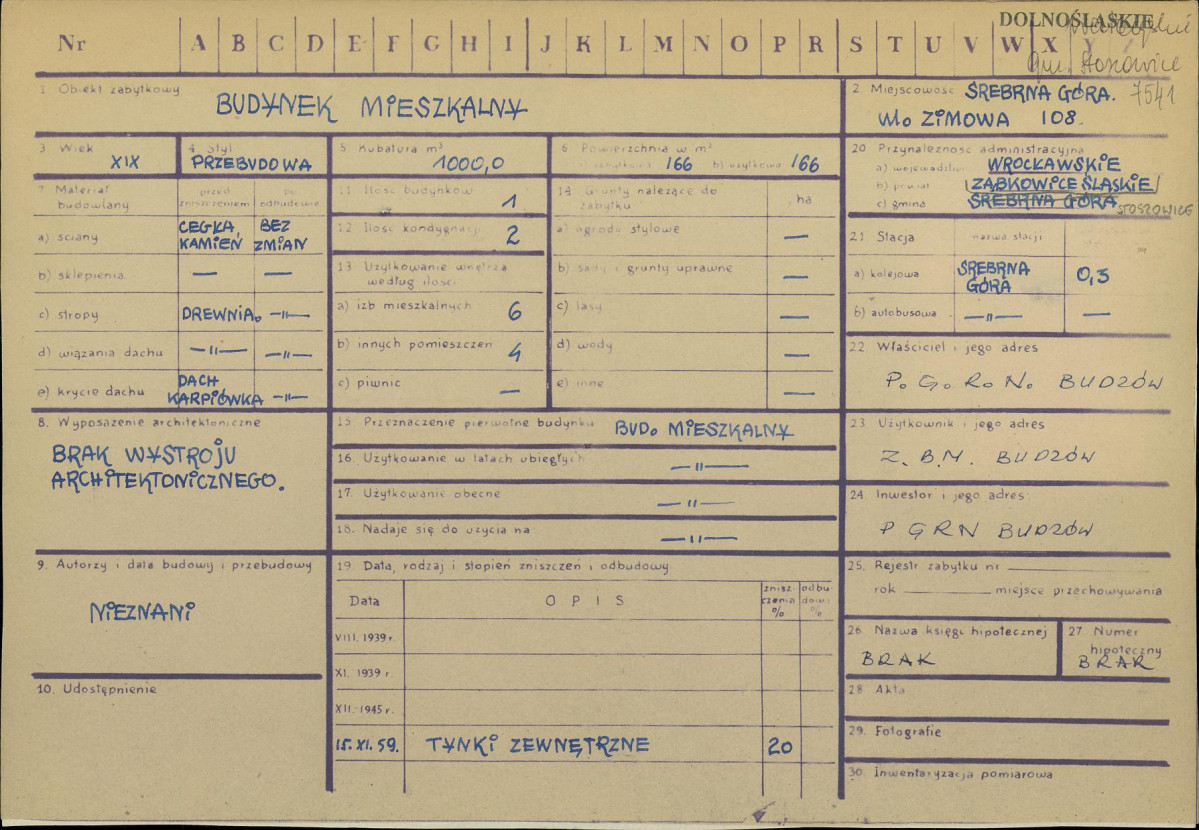 DOLNOŚLĄSKIE
Nr A B C D E F G H I J K L M N O P R S T U V W X Y Z
gm. Stoszowice
7541
1 Obiekt zabytkowy
BUDYNEK MIESZKALNY
2. Miejscowość SREBRNA GÓRA.
UL. ZIMOWA 108.
3 Wiek
XIX
4 Styl
PRZEBUDOWA
5 Kubatura m³
1000,0
6 Powierzchnia w m²
166 b) użytkowa 166
7 Materiał budowlany
przed zniszczeniem
po odbudowie
a) ściany CEGŁA, KAMIEŃ BEZ ZMIAN
b) sklepienia — —
c) stropy DREWNIA. —"—
d) wiązania dachu —"— —"—
e) krycie dachu DACH KARPIÓWKA —"—
8. Wyposażenie architektoniczne
BRAK WYSTROJU
ARCHITEKTONICZNEGO.
9. Autorzy i data budowy i przebudowy
NIEZNANI
10. Udostępnienie
11 Ilość budynków 1
12 Ilość kondygnacji 2
13 Użytkowanie wnętrza
według ilości
a) izb mieszkalnych 6
b) innych pomieszczeń 4
c) piwnic —
14 Grunty należące do
zabytku
ha
a) ogrody stylowe —
b) sady i grunty uprawne —
c) lasy —
d) wody —
e) inne —
15 Przeznaczenie pierwotne budynku BUD. MIESZKALNY
16. Użytkowanie w latach ubiegłych —"—
17. Użytkowanie obecne —"—
18. Nadaje się do użycia na —"—
19. Data, rodzaj i stopień zniszczeń i odbudowy
Data
O P I S
zniszczenia %
odbudowy %
VIII. 1939 r.
XI. 1939 r.
XII. 1945 r.
15. XI. 59. TYNKI ZEWNĘTRZNE 20
20 Przynależność administracyjna
a) województwo WROCŁAWSKIE
b) powiat ZĄBKOWICE ŚLĄSKIE
c) gmina SREBRNA GÓRA STOSZOWICE
21 Stacja nazwa stacji
a) kolejowa SREBRNA GÓRA 0,5
b) autobusowa —"— —
22 Właściciel i jego adres
P. G. R. N. BUDZÓW
23 Użytkownik i jego adres
Z. B. M. BUDZÓW
24 Inwestor i jego adres:
P GRN BUDZÓW
25. Rejestr zabytku nr
rok miejsce przechowywania
26 Nazwa księgi hipotecznej
BRAK
27 Numer
hipoteczny
BRAK
28 Akta
29. Fotografie
30. Inwentaryzacja pomiarowa